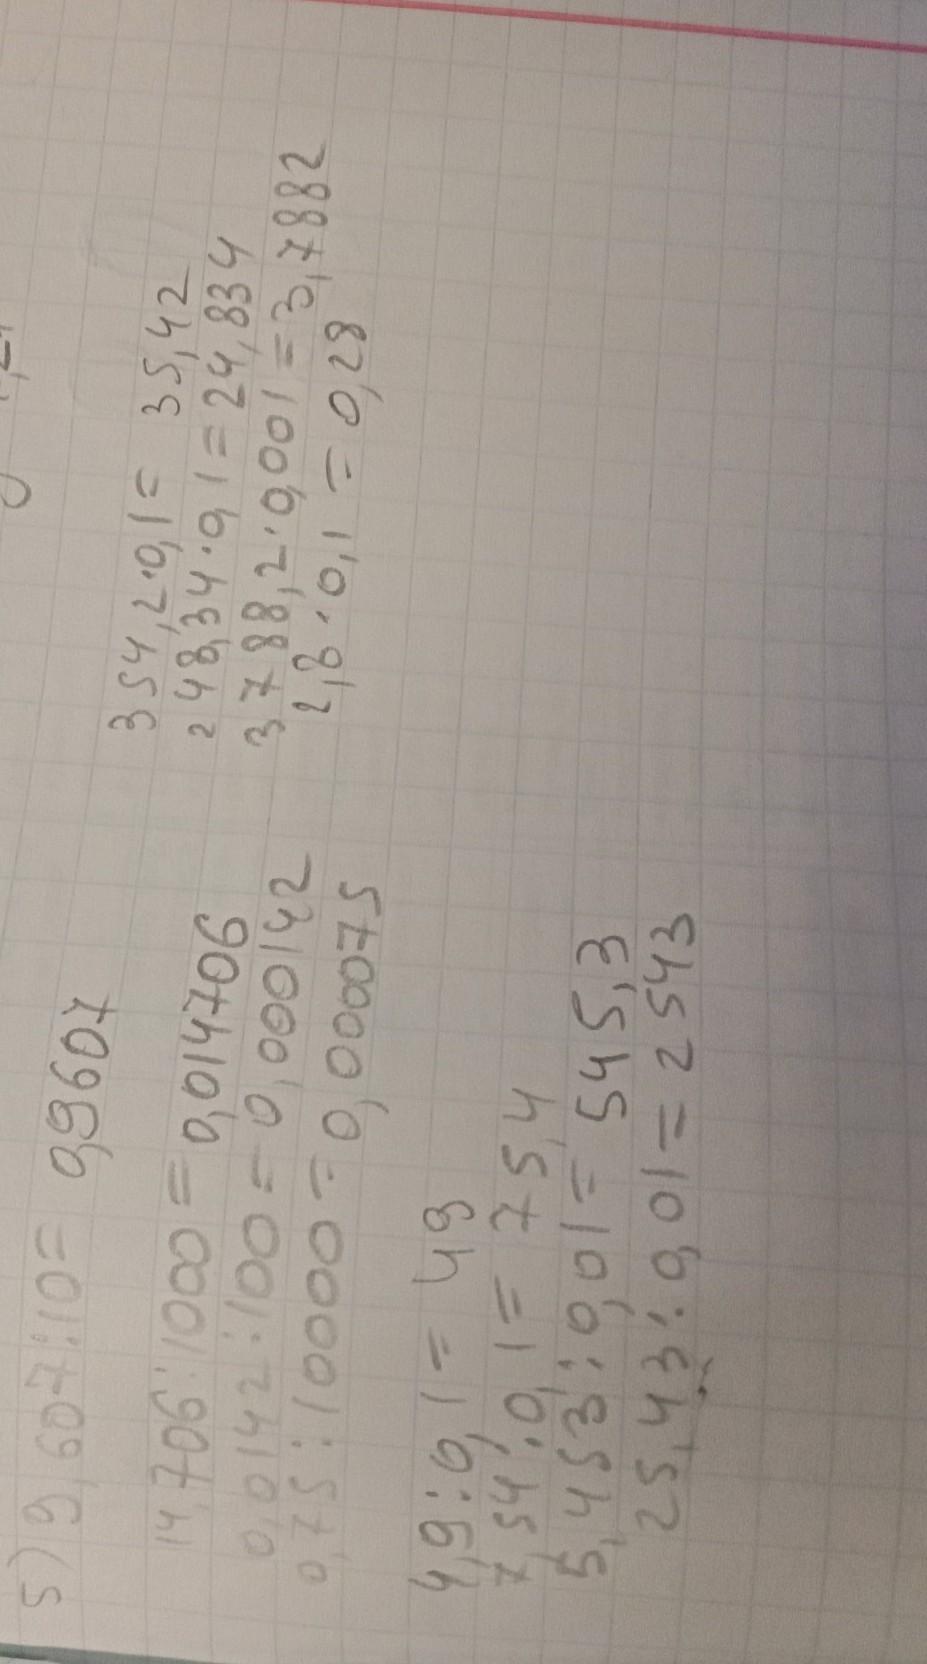 5) 9,607:10= 0,9607
14,706:1000=0,014706
0,0142:100=0,000142
0,75:10000=0,000075
4,9:0,1= 49
7,54:0,1= 75,4
5,453:0,01= 545,3
25,43:0,01=2543
354,2·0,1= 35,42
248,34·0,1=24,834
3788,2·0,001=3,7882
2,8·0,1=0,28